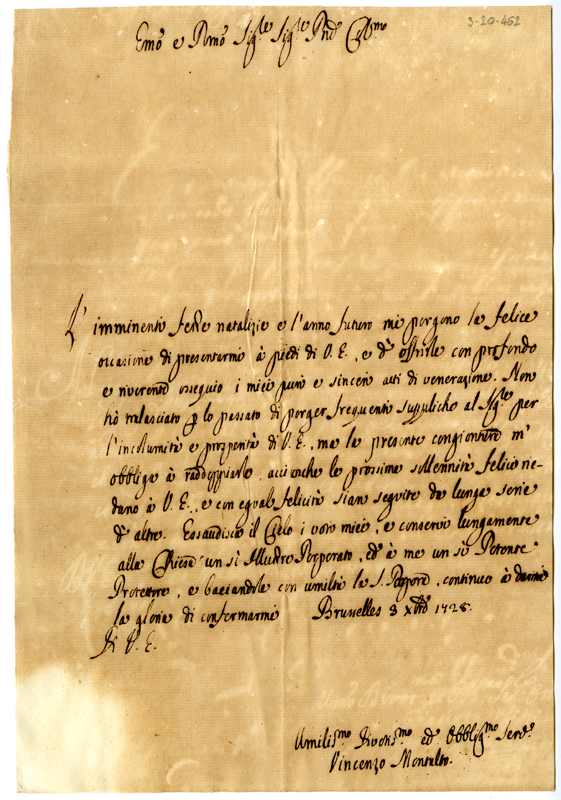 3-20-462
Emo e Rmo Sig.re Sig.re Pne Colmo
L'imminenti feste natalizie e l'anno futuro mi porgono la felice
occasione di presentarmi à piedi di V. E., e d'offrirle con profondo
e riverente ossequio i miei puri e sinceri atti di venerazione. Non
hò tralasciato p lo passato di porger frequenti suppliche al Sig.re per
l'incolumità e prosperità di V. E., ma le presente congionture m'
obbliga à raddoppiarle, acciò anche le prossime sollennità felici rie-
dano à V. E., e con egual felicità sian seguite da lunga serie
d'altre. Essaudisca il Cielo i voti miei, e conservi lungamente
alla Chiesa un sì Illustre Porporato, ed à me un sì Potente
Protettore, e baciandole con umiltà la S. Porpora, continuo à darmi
la gloria di confermarmi Brusselles 3 Xbre 1728.
Di V. E.
Umiliss.mo Divotis.mo ed Obblig.mo Serv.e
Vincenzo Montalto.